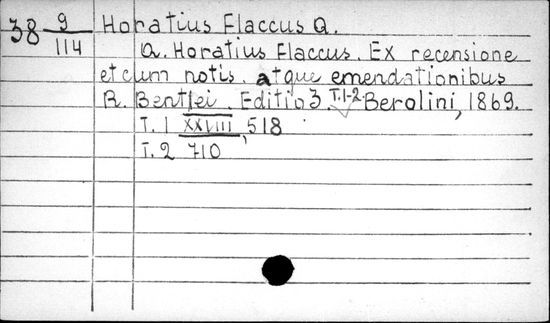 38 9/114 Horatius Flaccus Q.
Q. Horatius Flaccus. Ex recensione
et cum notis atque emendationibus
R. Bentlei. Editio 3. T.1-2. Berolini, 1869.
T. 1 XXVIII, 518
T. 2 710